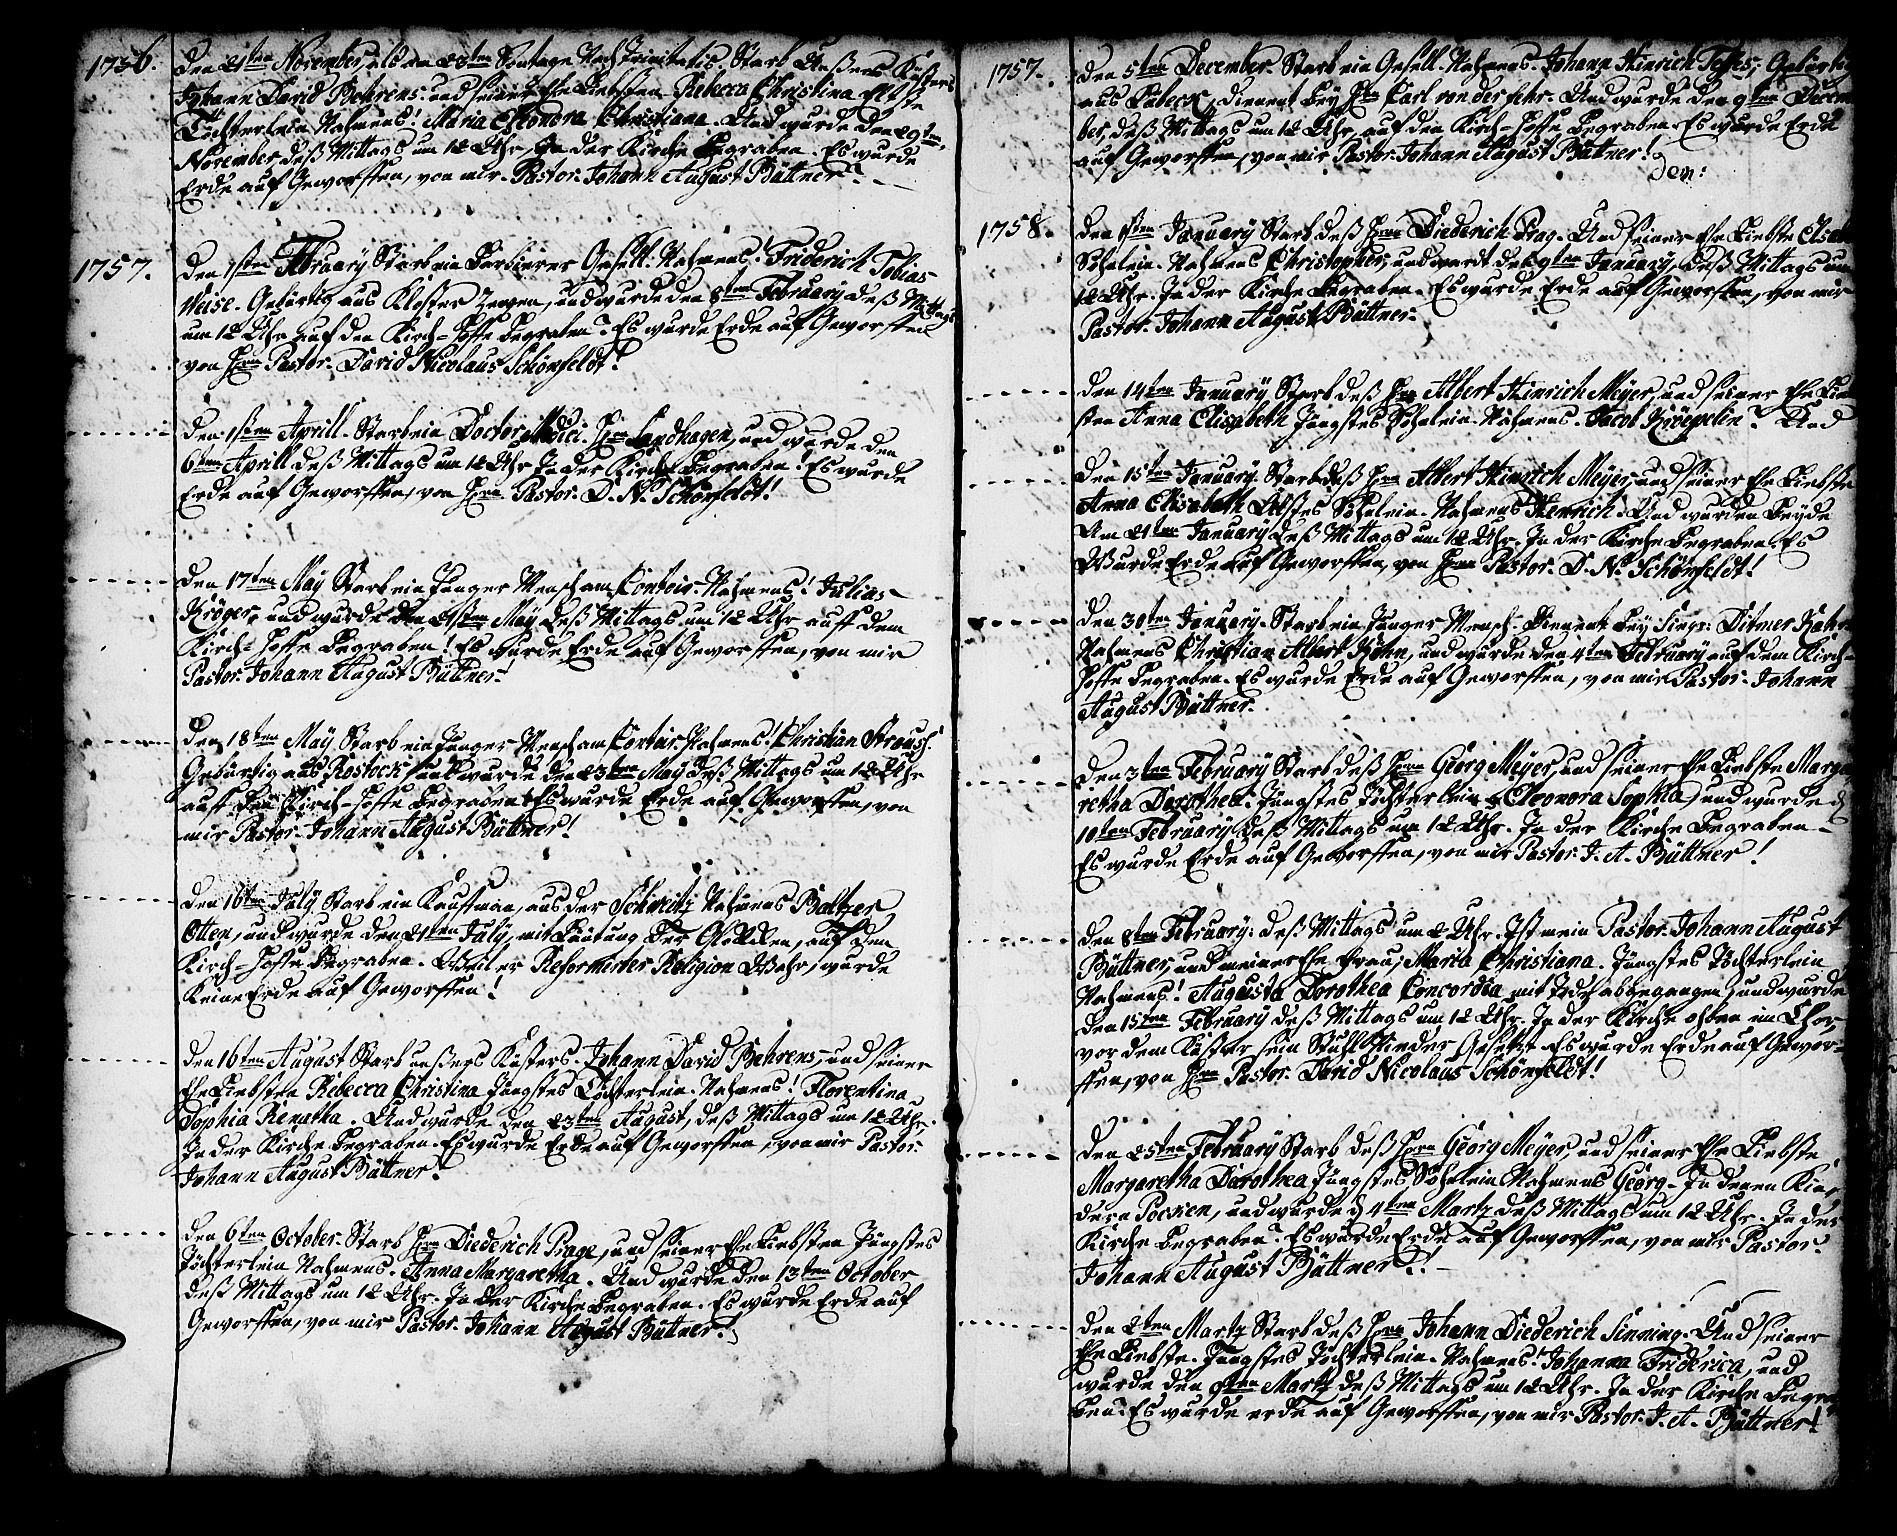 1756. Den 21ten November, als am 23ten Sontage Nach Trinitatis. Starb Unßers Küsters
Johann David Behrens. und seiner Ehe Liebsten Rebecca Christina Elste
Töchterlein Nahmens! Maria Eleonora Christiana. Und wurde den 29ten
November, deß Mittags um 12 Uhr, In der Kirche Begraben. Es wurde
Erde auf Geworffen, von mir Pastor Johann August Büttner.
1757. Den 1sten February Starb ein Barbierer Gesell. Nahmens. Friderich Tobias
Weise. Gebürtig aus Kloster Zeven, und wurde den 8ten February deß Mittags
um 12 Uhr auf den Kirch-Hoffe Begraben. Es wurde Erde auf Geworffen
von Hrn Pastor. David Nicolaus Schönfeldt!
Den 1sten Aprill. Starb ein Doctor Medici. Hrn Landhagen, und wurde den
6ten Aprill deß Mittags um 12 Uhr In der Kirche Begraben! Es wurde
Erde auf Geworffen, von Hrn Pastor. D. N. Schönfeldt!
Den 17ten May Starb ein Junger Mensch am Contoir. Nahmens! Julias
Kröger, und wurde den 21sten May deß Mittags um 12 Uhr auff dem
Kirch-Hoffe Begraben! Es wurde Erde auf Geworffen, von mir
Pastor. Johann August Büttner!
Den 18ten May Starb ein Junger Mensch am Contoir. Nahmens! Christian Strauß.
Gebürtig aus Rostock und wurde den 23ten May deß Mittags um 12 Uhr
auff den Kirch-Hoffe Begraben. Es wurde Erde auf Geworffen, von
mir Pastor. Johann August Büttner!
Den 16ten July Starb ein Kauffman, aus der Schweitz Nahmens Baltzer
Otten, und wurde den 21ten July, mit Läutung der Glocken, auf den
Kirch-Hoffe Begraben. Weil er Reformirter Religion Wahr, wurde
Keine Erde auf Geworffen!
Den 16ten August Starb unßers Küsters. Johann David Behrens, und seiner
Ehe Liebsten Rebecca Christina Jüngstes Töchterlein. Nahmens! Florentina
Sophia Renatha. Und wurde den 23ten August, deß Mittags um 12 Uhr.
In der Kirche Begraben. Es wurde Erde auf Geworffen, von mir Pastor.
Johann August Büttner!
Den 6ten October. Starb Hrn Diederich Prage, und seiner Ehe Liebsten Jüngstes
Töchterlein Nahmens. Anna Margaretha. Und wurde den 13ten October
deß Mittags um 12 Uhr. In der Kirche Begraben. Es wurde Erde auf
Geworffen, von mir Pastor. Johann August Büttner!
1757. Den 5ten December. Starb ein Gesell. Nahmens Johann Hinrich Gebürtig
aus Lübeck, dienent bey Hrn Carl von der Fehr. Und wurde den 9ten Decem
ber, deß Mittags um 12 Uhr, auf den Kirch-Hoffe Begraben. Es wurde Erde
auf Geworffen, von mir Pastor. Johann August Büttner!
Den:
1758. Den 1sten January Starb deß Hrn Diederich Prag. Und seiner Ehe Liebste Elsabe
Söhnlein. Nahmens Christopher, und wardt den 9ten January, deß Mittags um
12 Uhr. In der Kirche Begraben. Es wurde Erde auf Geworffen, von mir
Pastor. Johann August Büttner.
Den 14ten January, Starb deß Hrn Albert Hinrich Meyer, und seiner Ehe Lieb
sten Anna Elisabeth Jüngstes Söhnlein. Nahmens. Jacob Kröpelin. Und
Den 15ten January. Starb deß Hrn Albert Hinrich Meyer, und seiner Ehe Liebste
Anna Elisabeth Elstes Söhnlein. Nahmens Henrich. Und wurden Beyde
Am 21ten January deß Mittags um 12 Uhr. In der Kirche Begraben. Es
Wurde Erde auf Geworffen, von Hrn Pastor. D. N. Schönfeldt!
Den 30ten January. Starb ein Junger Mensch. Dienent bey Sieg: Ditmer
Nahmens Christian Albert Köhn, und wurde den 4ten February auf dem Kirch-
Hoffe Begraben. Es wurde Erde auf Geworffen, von mir Pastor. Johann
August Büttner.
Den 3ten February Starb deß Hrn Georg Meyer, und seiner Ehe Liebste Marga
retha Dorothea. Jüngstes Töchterlein. Eleonora Sophia, und wurde d
10ten February deß Mittags um 12 Uhr. In der Kirche Begraben.
Es wurde Erde auf Geworffen, von mir Pastor. J. A. Büttner!
Den 8ten February: deß Mittags um 2 Uhr. Ist mein Pastor. Johann August
Büttner, und meiner Ehe Frau, Maria Christiana. Jüngstes Töchterlein
Nahmens! Augusta Dorothea Concordia mit Todt abgegangen, und wurde
Den 15ten February deß Mittags um 12 Uhr. In der Kirche oben im Chor,
vor dem Küster sein Stuhl Nieder Gesetzt. Es wurde Erde auf Gewor=
ffen, von Hrn Pastor. David Nicolaus Schönfeldt!
Den 25ten February Starb deß Hrn Georg Meyer, und seiner Ehe Liebste
Margaretha Dorothea Jüngstes Söhnlein Nahmens Georg. In denen Kin=
dern Pocken, und wurde d 4ten Martz deß Mittags um 12 Uhr. In der
Kirche Begraben. Es wurde Erde auf Geworffen, von mir Pastor.
Johann August Büttner!
Den 2ten Martz Starb deß Hrn Johann Diederich Sinning. Und seiner
Ehe Liebste. Jüngstes Töchterlein. Nahmens! Johanna Friderica, und
wurde den 9ten Martz, deß Mittags um 12 Uhr. In der Kirche Begra
ben. Es wurde erde auf Geworffen, von mir Pastor. J. A. Büttner!